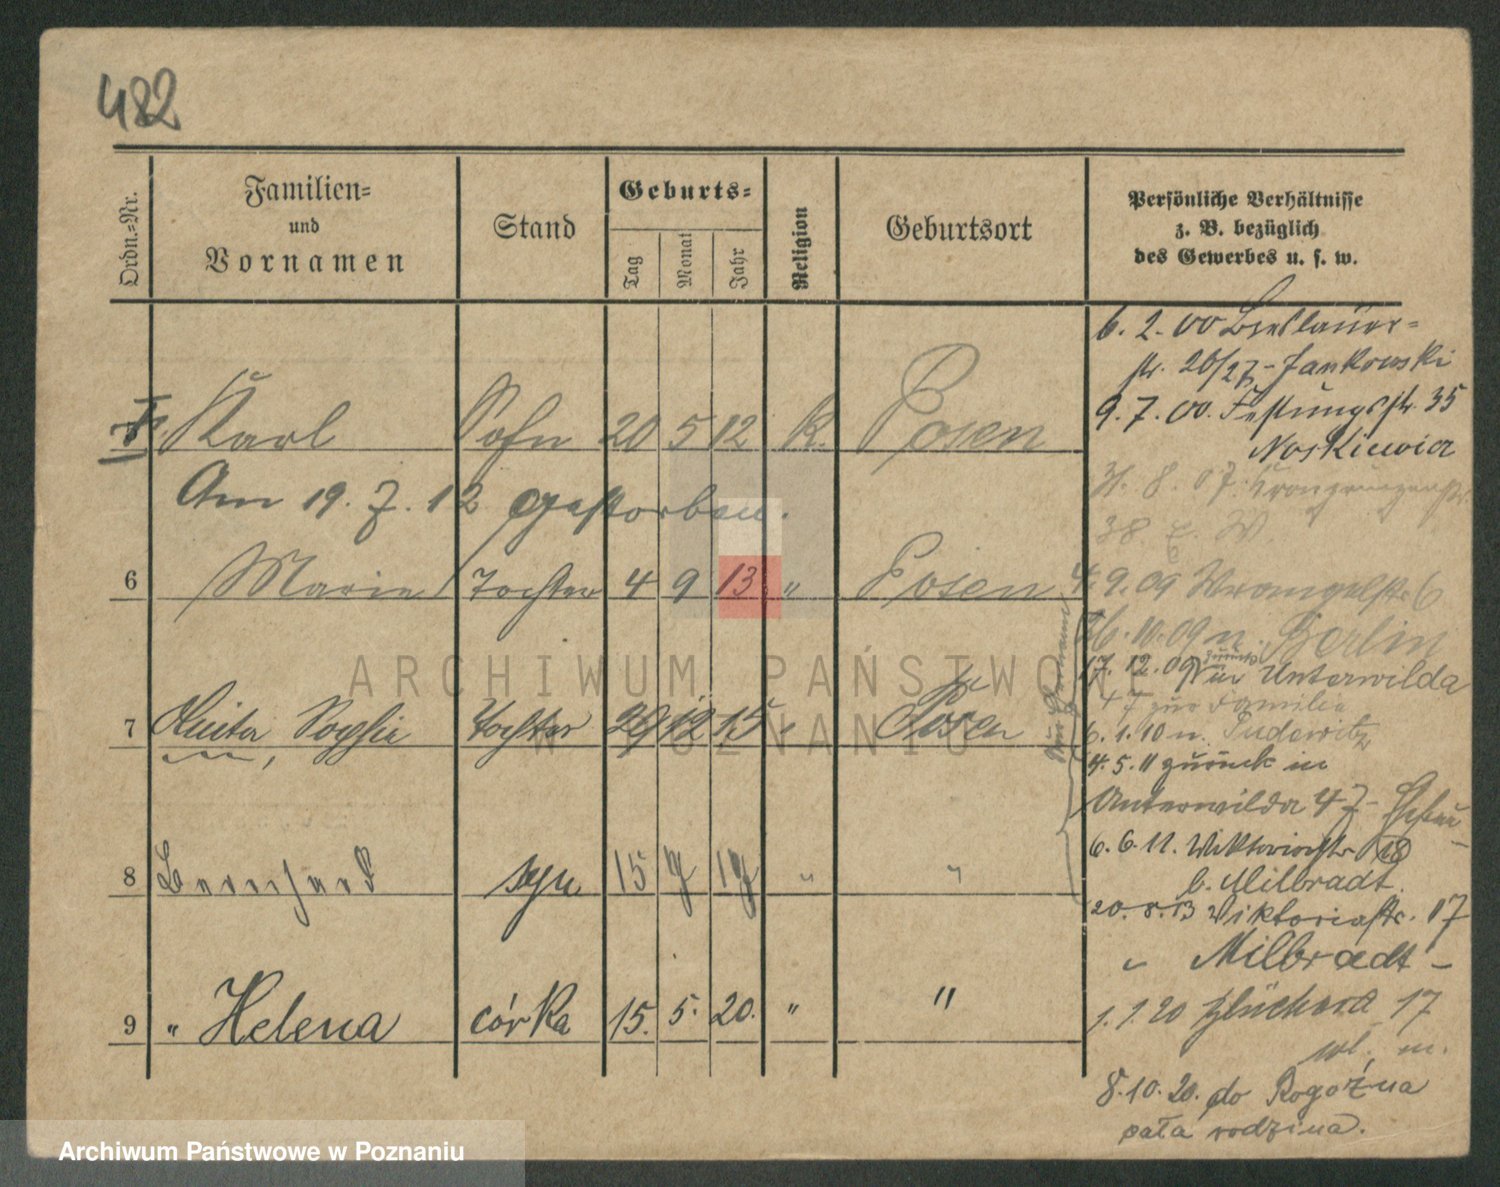 482
Ordn.-Nr.
Familien-
und
Vornamen
Stand
Geburts-
Tag
Monat
Jahr
Religion
Geburtsort
Persönliche Verhältnisse
z. B. bezüglich
des Gewerbes u. s. w.
Karl Sohn 20 5 12 k. Posen
Am 19. 7. 12 gestorben.
6 Marie Tochter 4 9 13 " Posen
7 Sophie Tochter 29 12 15 " Posen
8 Bernhard syn 15 " "
9 " Helena córka 15. 5. 20. " "
6. 2. 00 Breslauer-
str. 20/27 - Jankowski
9. 7. 00. Festungsstr. 35
Noskiewicz
31. 8. 07. Kronprinzenstr.
38 W.
4. 9. 09 Wrangelstr. 6
26. 10. 09 n. Berlin
17. 12. 09 zurück Unterwilda
47 zur Familie
6. 1. 10 n. Pudewitz
4. 5. 11 zurück in
Unterwilda 47 -
6. 6. 11. Viktoriastr. 18
b. Milbradt.
20. 8. 13 Viktoriastr. 17
" Milbradt -
1. 1. 20 17
wł. m.
8. 10. 20. do Rogoźna
cała rodzina.
ARCHIWUM PAŃSTWOWE
W POZNANIU
Archiwum Państwowe w Poznaniu